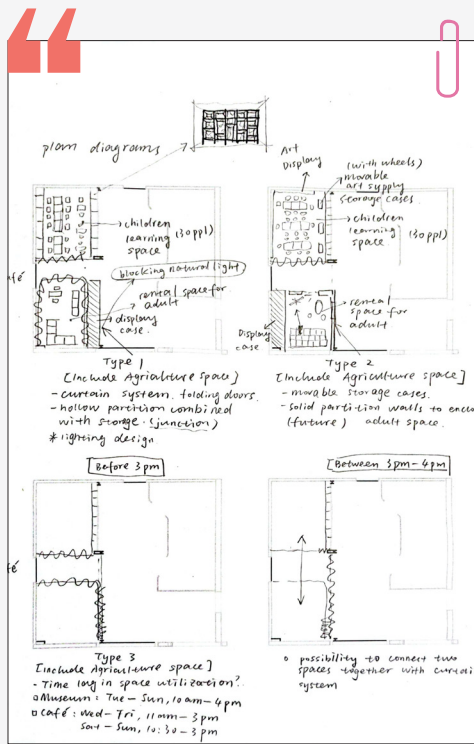 “
plan diagrams
Art
Display
(with wheels)
movable
art supply
storage cases.
children
learning
space
(30 ppl)
children
learning
space
(30 ppl)
afé
blocking natural light
rental space for
adult
display
case.
rental
space for
adult
Display
case
Type 1
[Include Agriculture Space]
- curtain system. folding doors.
- hollow partition combined
with storage. (junction)
* lighting design
Type 2
[Include Agriculture Space]
- movable storage cases.
- solid partition walls to enclo
(future) adult space.
Before 3pm
Between 3pm - 4pm
fé
Type 3
[Include Agriculture space]
- Time lag in space utilization?
Museum: Tue - Sun, 10am - 4pm
Café: Wed - Fri, 11am - 3pm
Sat - Sun, 10:30 - 3pm
possibility to connect two
spaces together with curtai
system